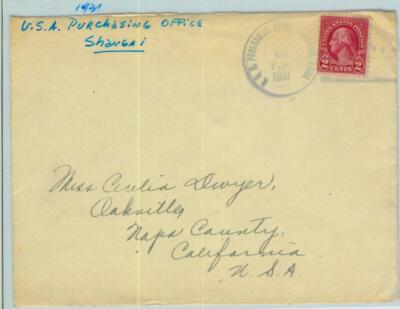 1931
U.S.A. PURCHASING OFFICE
Shangai
P.M.
1931
UNITED STATES POSTAGE
2 CENTS 2
Miss Cecilia Dwyer,
Oakville,
Napa County,
California
U.S.A.